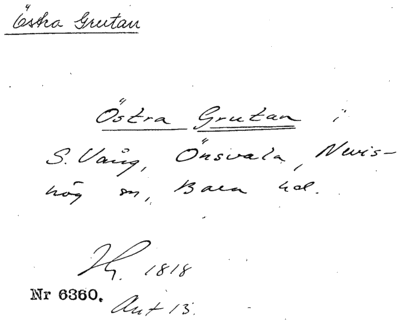 Östra Grutan
Östra Grutan i
S. Vång, Önsvala, Nevis-
hög sn, Bara hd.
Nr 6360. 1818
Akt 13.